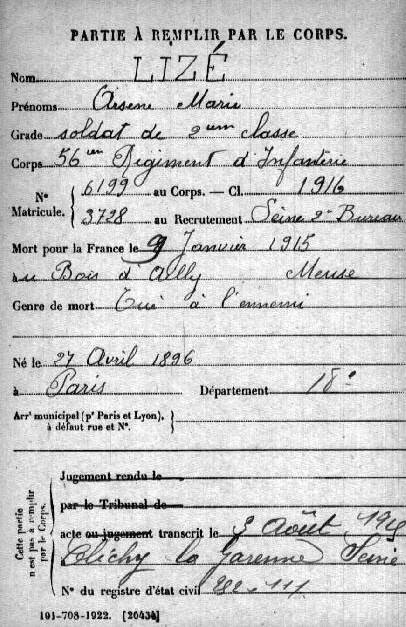 PARTIE À REMPLIR PAR LE CORPS.
Nom LIZÉ
Prénoms Arsène Marie
Grade soldat de 2eme classe
Corps 56eme Régiment d'Infanterie
N° Matricule. { 6199 au Corps. — Cl. 1916
3728 au Recrutement Seine 2e Bureau
Mort pour la France le 9 Janvier 1915
au Bois d'Ailly Meuse
Genre de mort Tué à l'ennemi
Né le 27 Avril 1896
à Paris Département 18e
Arrt municipal (pr Paris et Lyon), à défaut rue et N°. }
Cette partie n'est pas à remplir par le Corps.
Jugement rendu le
par le Tribunal de
acte ou jugement transcrit le Août
Clichy la Garenne Seine
N° du registre d'état civil
191-708-1922. [26434]